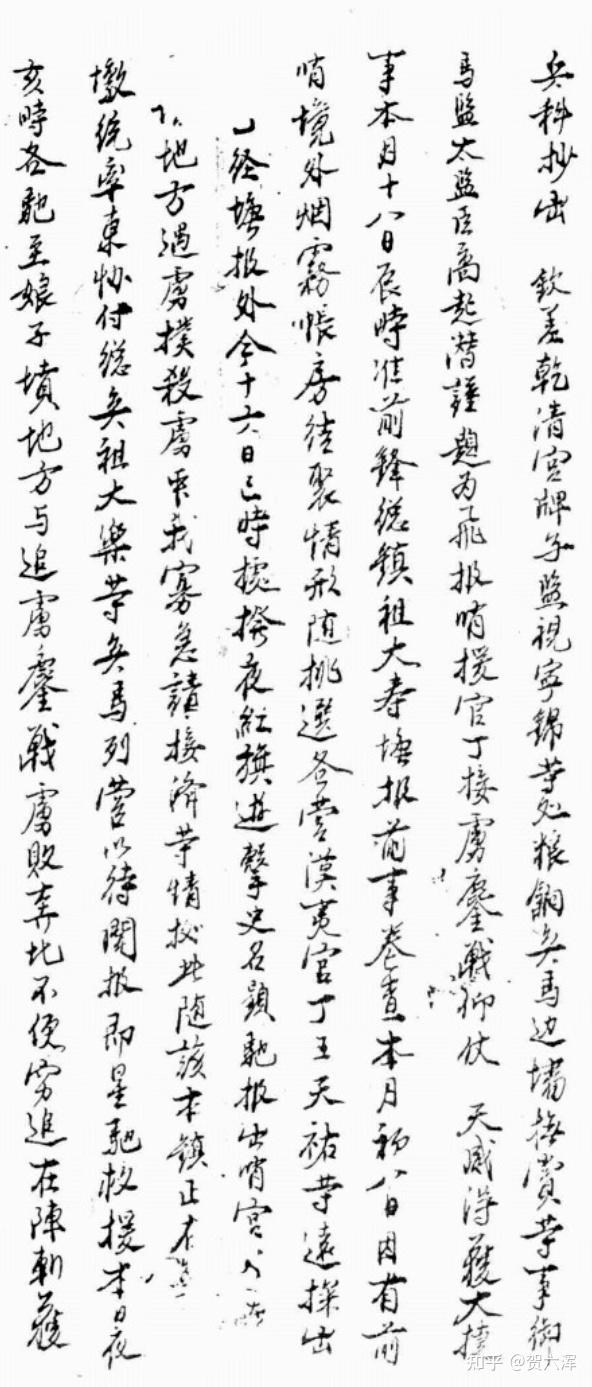 兵科抄出 欽差乾清宮牌子監視寧錦等处粮餉兵馬边墻撫賞等事御
馬監太監臣高起潜謹題为飛报哨撥官丁接虜鏖戰仰仗 天威得獲大捷
事本月十八日辰時准前鋒総鎮祖大寿塘报前事卷查本月初八日因有前
哨境外烟霧帳房結聚情形随挑選各营漢夷官丁王天祐等遠探出
经塘报外今十六日巳時據撥夜紅旗遊擊史名顯馳报出哨官
地方遇虜撲殺虜众我寡急請接濟等情據此随該本鎮正在
墩統率東协付総兵祖大樂等兵馬列营以待聞报即星馳救援本日夜
亥時各馳至娘子墳地方与追虜鏖戰虜敗奔北不便穷追在陣斬獲
知乎 @贺六浑